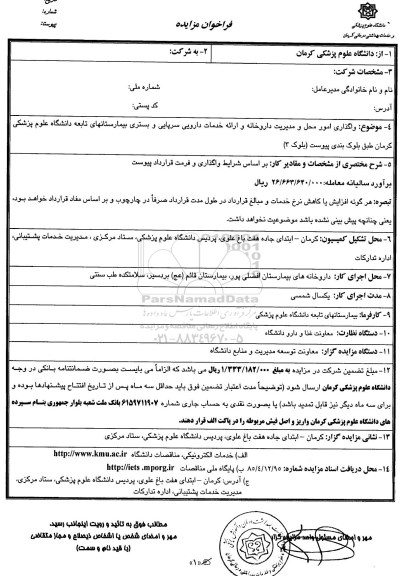 دانشگاه علوم پزشکی
و خدمات بهداشتی درمانی کرمان
فراخوان مزایده
شماره:
پیوست:
۱- از: دانشگاه علوم پزشکی کرمان
۲- به شرکت:
۳- مشخصات شرکت:
نام و نام خانوادگی مدیرعامل:
شماره ملی:
آدرس:
کد پستی:
۴- موضوع: واگذاری امور محل و مدیریت داروخانه و ارائه خدمات دارویی سرپایی و بستری بیمارستانهای تابعه دانشگاه علوم پزشکی
کرمان طبق بلوک بندی پیوست (بلوک ۳)
۵- شرح مختصری از مشخصات و مقادیر کار: بر اساس شرایط واگذاری و فرمت قرارداد پیوست
برآورد سالیانه معامله: ۲۶/۶۶۳/۶۳۰/۰۰۰ ریال
تبصره: هر گونه افزایش یا کاهش نرخ خدمات و مبالغ قرارداد در طول مدت قرارداد صرفاً در چارچوب و بر اساس مفاد قرارداد خواهد بود،
یعنی چنانچه پیش بینی نشده باشد موضوعیت نخواهد داشت.
۶- محل تشکیل کمیسیون: کرمان – ابتدای جاده هفت باغ علوی، پردیس دانشگاه علوم پزشکی، ستاد مرکزی ، مدیریت خدمات پشتیبانی،
اداره تدارکات
۷- محل اجرای کار: داروخانه های بیمارستان افضلی پور، بیمارستان قائم (عج) بردسیر، سلامتکده طب سنتی
۸- مدت اجرای کار: یکسال شمسی
۹- کارفرما: بیمارستانهای تابعه دانشگاه علوم پزشکی
۱۰- دستگاه نظارت: معاونت غذا و دارو دانشگاه
۱۱- دستگاه مزایده گزار: معاونت توسعه مدیریت و منابع دانشگاه
۱۲- مبلغ تضمین شرکت در مزایده به مبلغ ۱/۳۳۳/۱۸۲/۰۰۰ ریال می باشد که الزاماً می بایست بصورت ضمانتنامه بانکی در وجه
دانشگاه علوم پزشکی کرمان ارسال شود (توضیحاً مدت اعتبار تضمین فوق باید حداقل سه ماه پس از تاریخ افتتاح پیشنهادها بوده و
برای سه ماه دیگر نیز قابل تمدید باشد) یا بصورت نقدی به حساب جاری شماره ۶۱۵۹۷۱۱۹۰۷ بانک ملت شعبه بلوار جمهوری بنام سپرده
های دانشگاه علوم پزشکی کرمان واریز و اصل فیش مربوطه را در پاکت الف قرار دهند.
۱۳- نشانی مزایده گزار: کرمان – ابتدای جاده هفت باغ علوی، پردیس دانشگاه علوم پزشکی، ستاد مرکزی
الف) خدمات الکترونیکی، مناقصات دانشگاه http://www.kmu.ac.ir
۱۴- محل دریافت اسناد مزایده شماره: ۸۵/۴/۱۲/۹۵ ب) پایگاه ملی مناقصات http://iets .mporg.ir
ج) آدرس: کرمان – ابتدای جاده هفت باغ علوی، پردیس دانشگاه علوم پزشکی، ستاد مرکزی،
مدیریت خدمات پشتیبانی، اداره تدارکات
مهر و امضای مسئول واحد مزایده گزار
مطالب فوق به تائید و رویت اینجانب رسید.
مهر و امضای شخص یا اشخاص ذیصلاح و مجاز متقاضی
(با قید نام و سمت)
ParsNamadData
۰۲۱-۸۸۳۴۹۶۷۰-۵